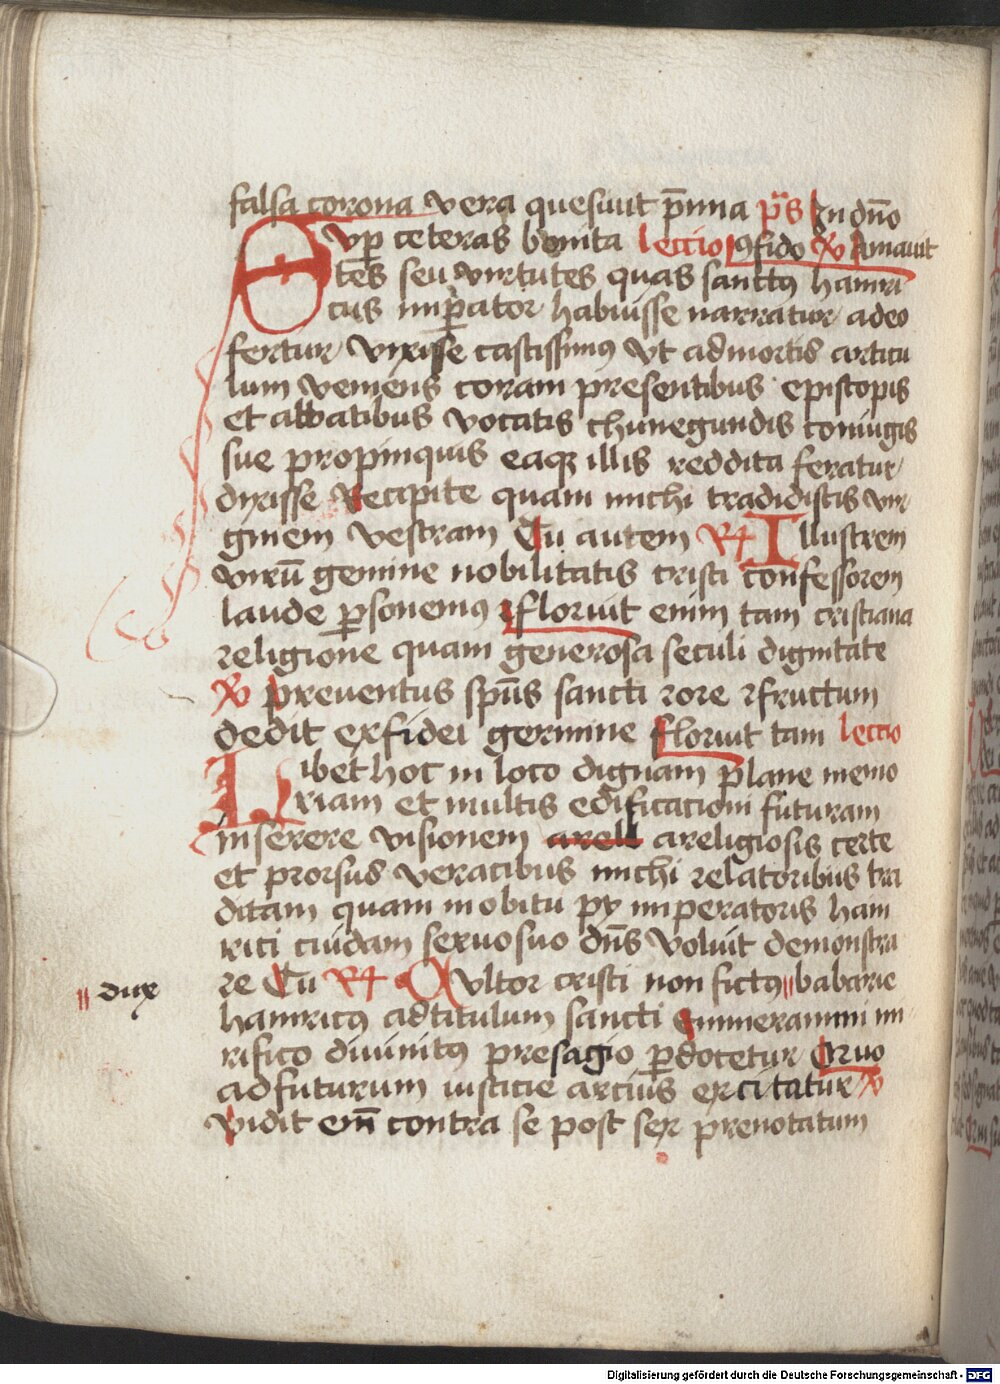 falsa corona vera quesiuit p̄mia p̄s In dn̄o
Sup̲ ceteras bonita lectio ꝯfido V Amauit
tēs seu virtutes quas sanctꝰ hainri
cus imp̲ator habuisse narratur adeo
fertur vixisse castissimꝰ vt ad mortis articu
lum veniens coram presentibus episcopis
et abbatibus vocatis chunegundis coniugis
sue propinquis eaqꝫ illis reddita feratur
dixisse Recipite quam michi tradidistis vir
ginem vestram Cū autem R Illustrem
virū gemine nobilitatis cristi confessorem
laude p̲sonemꝰ Floruit enim tam cristiana
religione quam generosa seculi dignitate
V preuentus sp̄us sancti rore ⁊ fructum
dedit ex fidei germine floruit tam lectio
Libet hoc in loco dignam plane memo
riam et multis edificationi futuram
inserere visionem arell a religiosis certe
et prorsus veracibus michi relatoribus tra
ditam quam in obitu py imperatoris hain
rici cuidam seruo suo dn̄s voluit demonstra
re Cū R Cultor cristi non fictꝰ || babarie
|| dux
hainricꝰ ad titulum sancti Emmerammi mi
rifico diuinitꝰ presagio p̲docetur Quo
ad futurum iusticie arcius excitatur V
vidit em̄ contra se post sex prenotatum